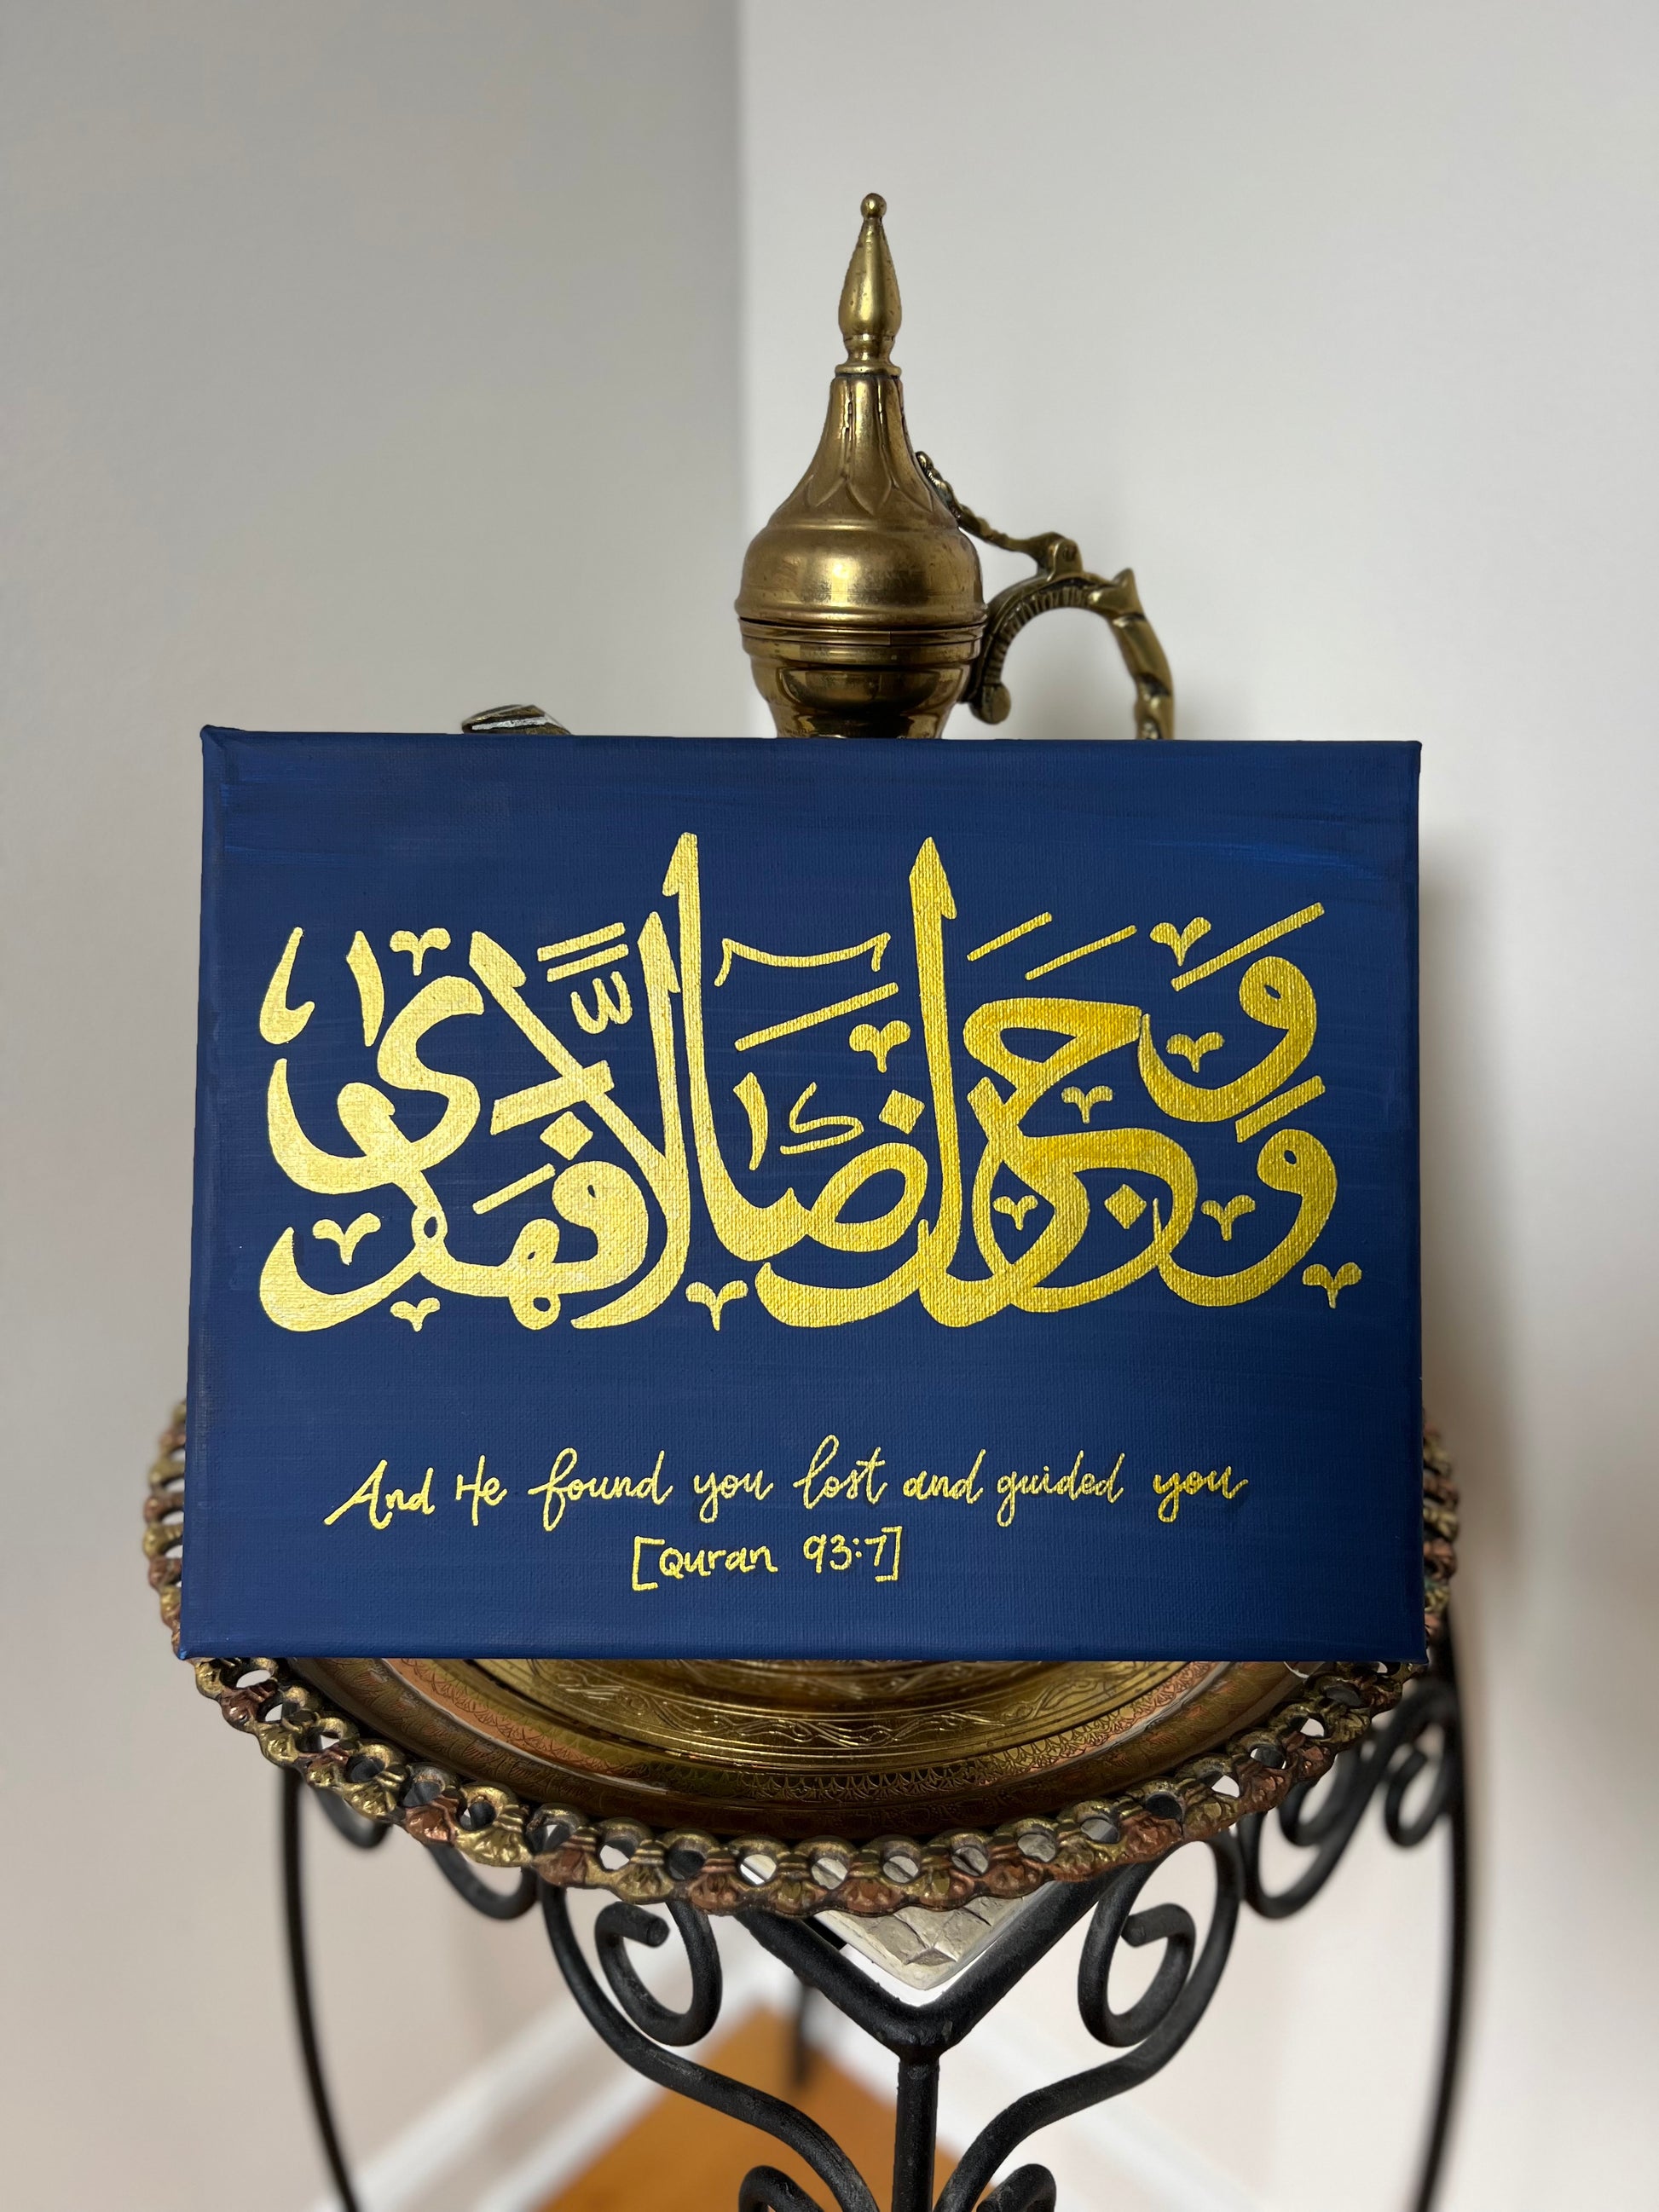 ووجدك ضالا فهدى
And He found you lost and guided you
[Quran 93:7]